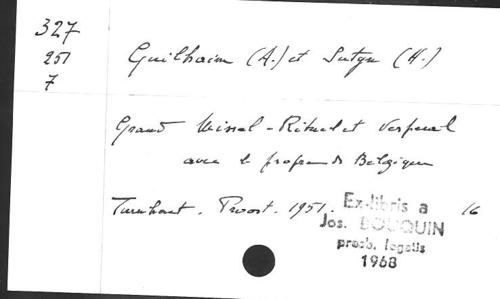 327
251
7
Guilhaim (A.) et Sutyn (H.)
Grand Missel - Rituel et Vesperal
avec le propre de Belgique
Turnhout. Proost. 1951. 16
Ex-libris a
Jos. BOUQUIN
presb. legatis
1968